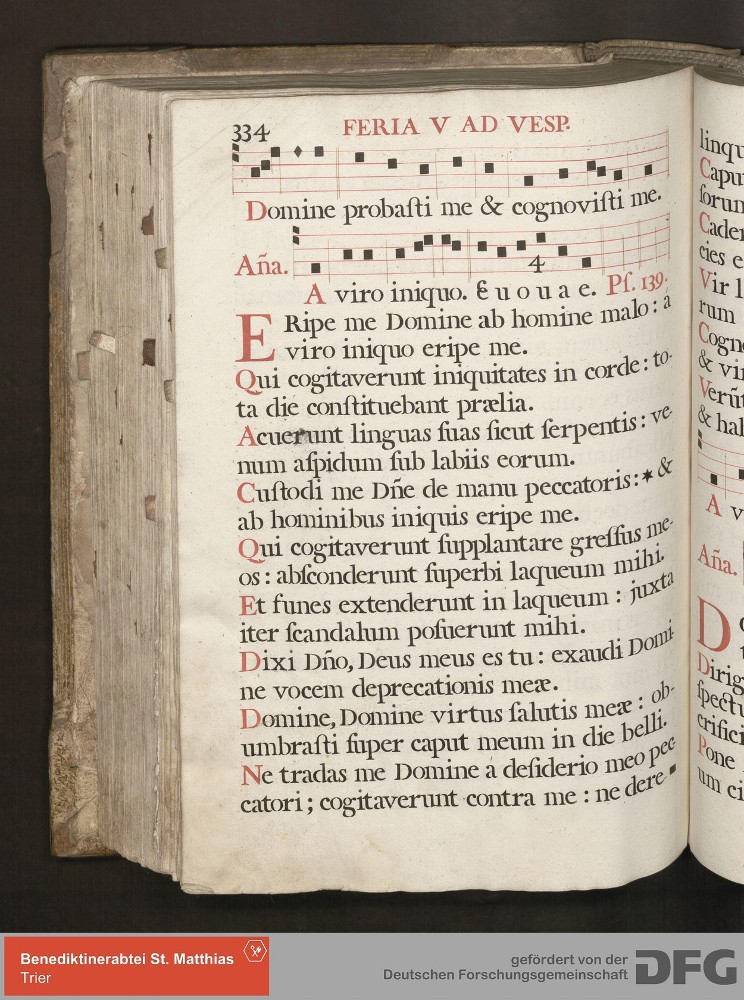 334 FERIA V AD VESP.
Domine probaſti me & cognoviſti me.
Aña.
4
A viro iniquo. E u o u a e. Pſ. 139.
ERipe me Domine ab homine malo: a
viro iniquo eripe me.
Qui cogitaverunt iniquitates in corde: to-
ta die conſtituebant prælia.
Acuerunt linguas ſuas ſicut ſerpentis: ve-
num aſpidum ſub labiis eorum.
Cuſtodi me Dñe de manu peccatoris: * &
ab hominibus iniquis eripe me.
Qui cogitaverunt ſupplantare greſſus me-
os: abſconderunt ſuperbi laqueum mihi.
Et funes extenderunt in laqueum: juxta
iter ſcandalum poſuerunt mihi.
Dixi Dño, Deus meus es tu: exaudi Domi-
ne vocem deprecationis meæ.
Domine, Domine virtus ſalutis meæ: ob-
umbraſti ſuper caput meum in die belli.
Ne tradas me Domine a deſiderio meo pec-
catori; cogitaverunt contra me: ne dere-
linqu
Capu
ſorum
Cader
cies e
Vir l
rum
Cogno
& vin
Verũt
& hab
A v
Aña.
D
Dirig
ſpectu
crifici
Pone
um ci
Benediktinerabtei St. Matthias
Trier
gefördert von der
Deutschen Forschungsgemeinschaft
DFG